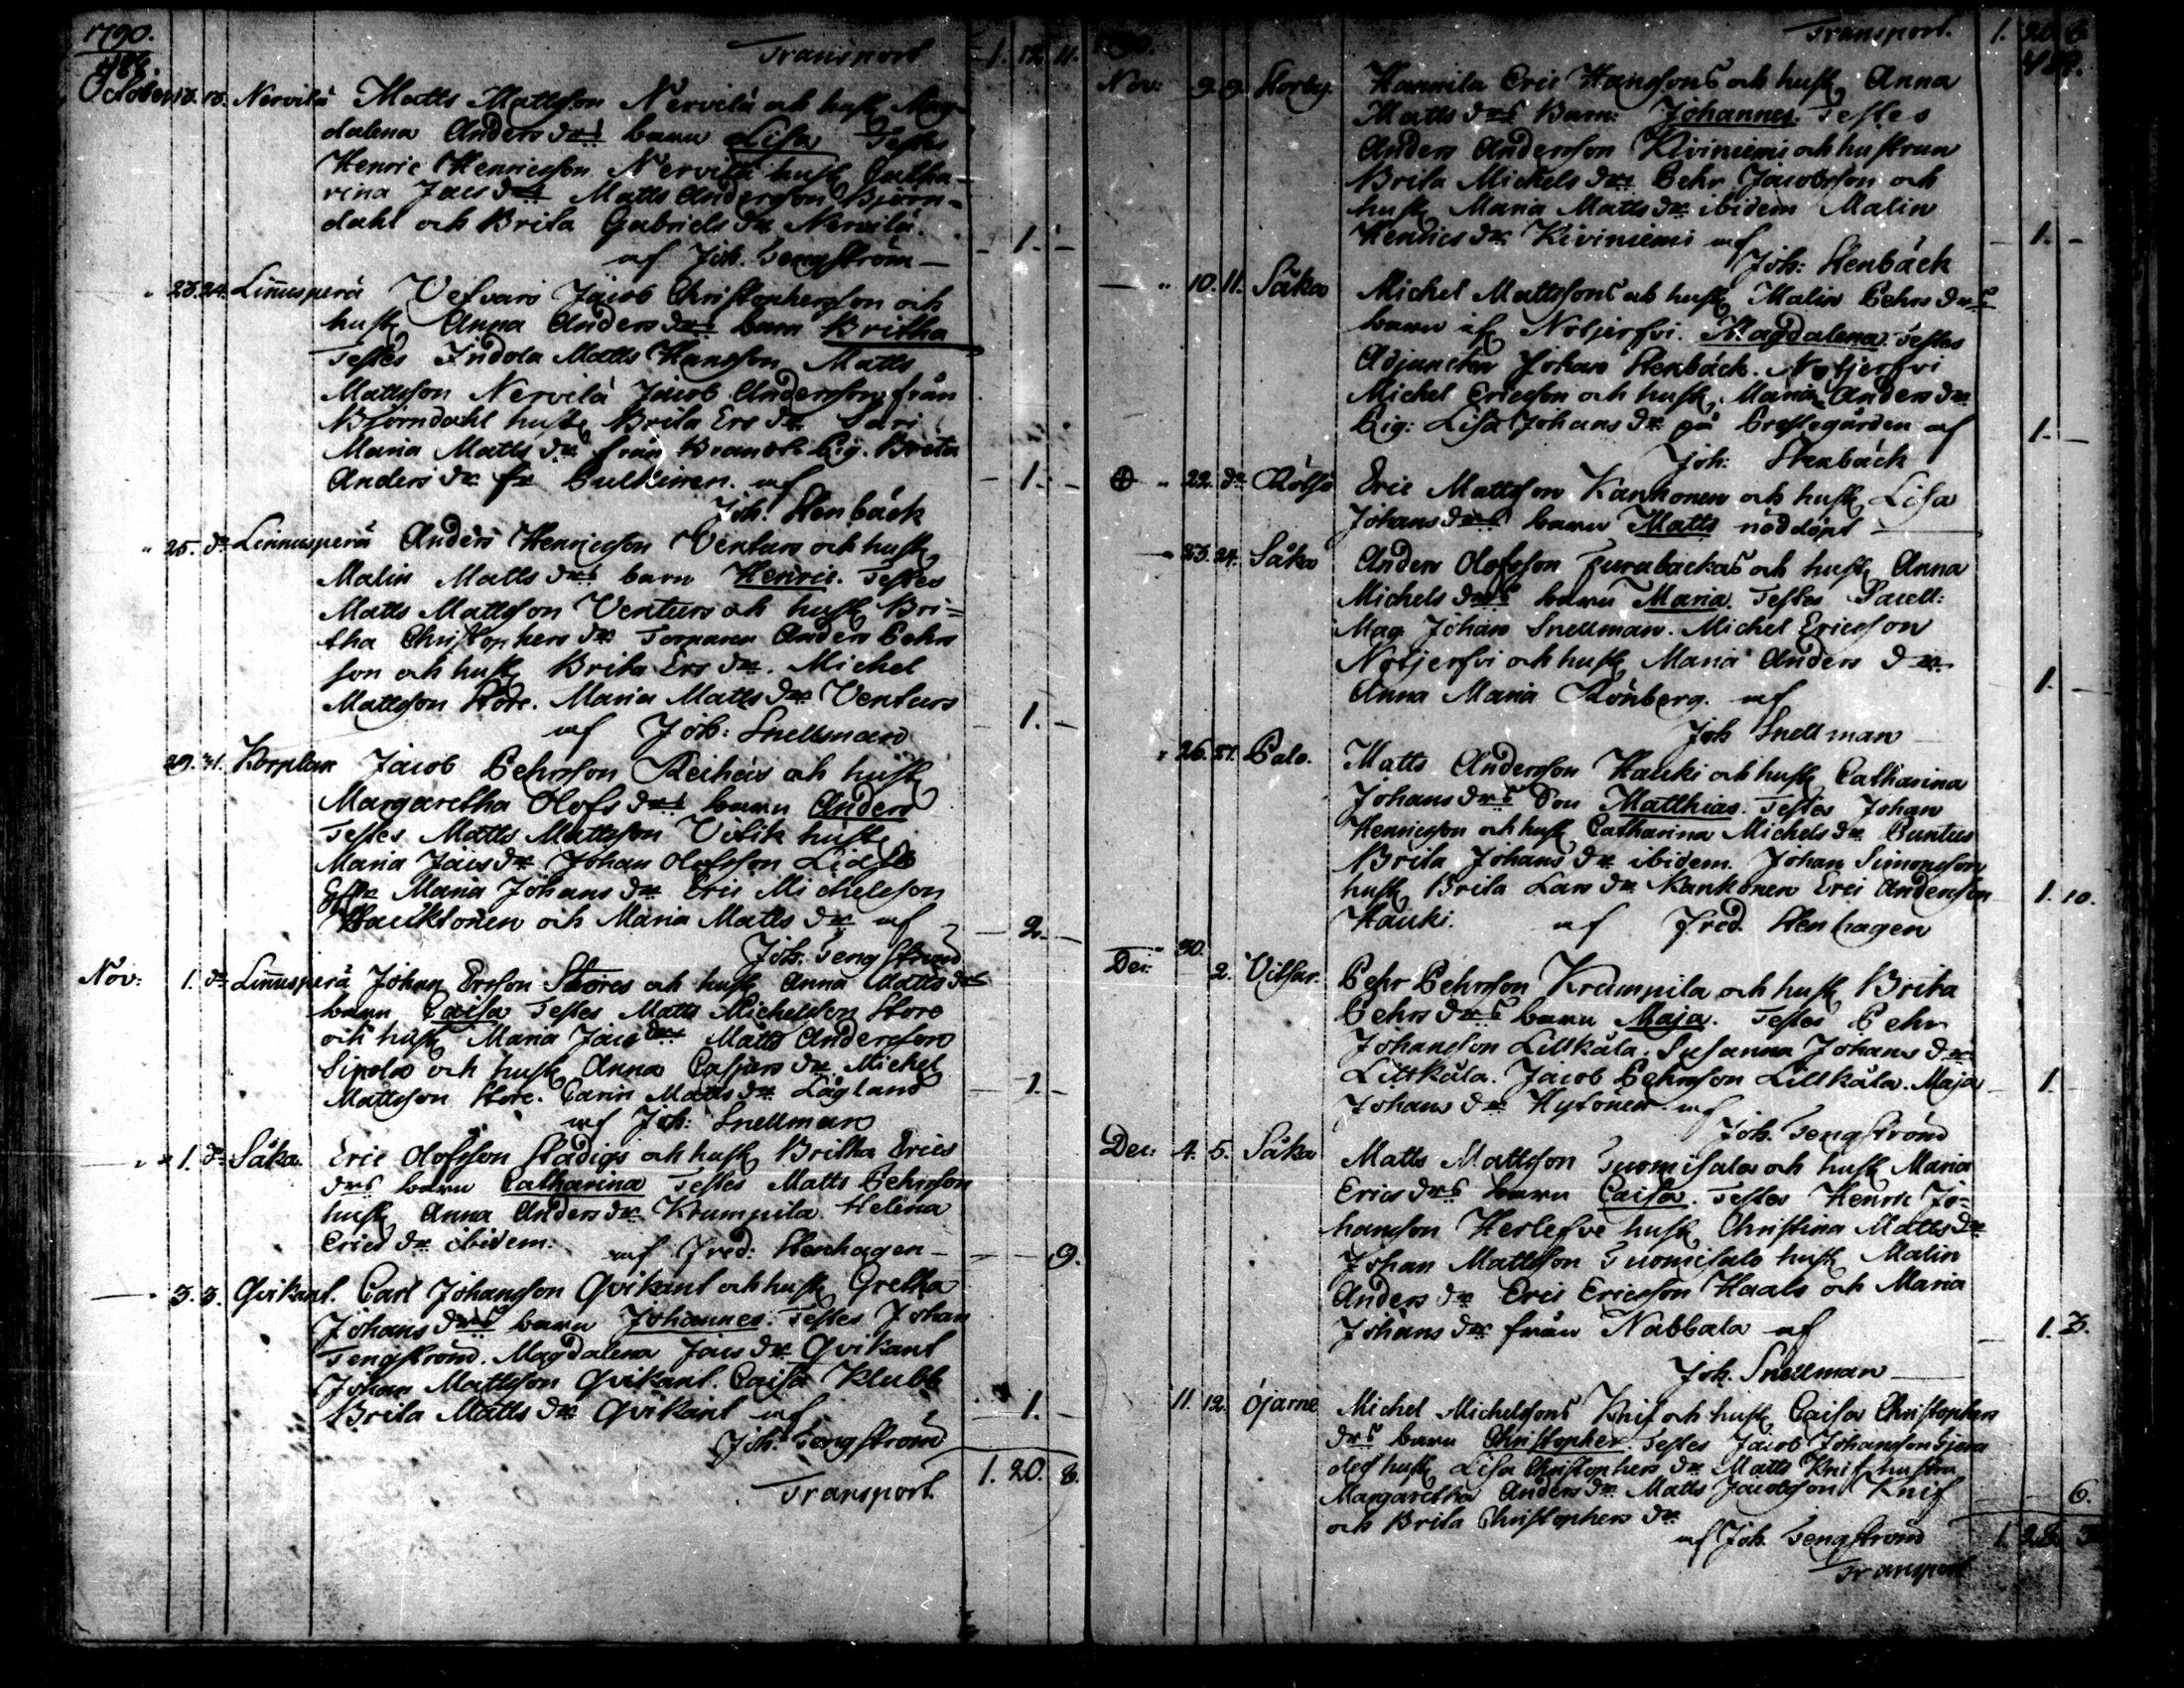 1790.
488.
Transport 1. 12. 11.
October 13. 13. Nervilä Matts Mattsson Nervilä och hust. Mag-
dalena Anders drs barn Lisa Testes
Henric Henricsson Nervilä hust. Catha-
rina Jacs dr Matts Andersson Björn-
dahl och Brita Gabriels dr Nervilä.
af Joh. Tengström — 1. —
" 23. 24. Linnusperä Vefvars Jacob Christophersson och
hust. Anna Anders drs barn Britha
Testes Indola Matts Hansson Matts
Mattsson Nervilä Jacob Andersson från
Björndahl hust. Brita Ers dr Sari
Maria Matts dr från Brandt Pig. Brita
Anders dr fr Pulkinen. af 1. —
Joh. Stenbäck
" 25. do Linnusperä Anders Henricsson Venturs och hust.
Malin Matts drs barn Henric. Testes
Matts Mattsson Venturs och hust. Bri-
tha Christophers dr Torparen Anders Pehrs
son och hust. Brita Ers dr. Michel
Mattsson Store. Maria Matts dr Venturs
af Joh: Snellman 1. —
29. 31. Korplax Jacob Pehrsson Reihäis och hust.
Margaretha Olofs drs barn Anders
Testes Matts Mattsson Vilik hust.
Maria Jacs dr Johan Olofsson
Maria Johans dr Eric Michelsson
Hauktonen och Maria Matts dr af 2. —
Joh. Tengström
Nov: 1. do Linnusperä Johan Ersson Stores och hust. Anna Matts drs
barn Caisa Testes Matts Michelsson Store
och hust. Maria Jacs dr Matts Andersson
Sipola och hust. Anna Caspers dr Michel
Mattsson Store. Carin Matts dr Lågland 1. —
af Joh: Snellman
" 1. do Såka. Eric Olofsson Stadigs och hust. Britha Erics
drs barn Catharina Testes Matts Pehrsson
hust. Anna Anders dr Krumpila. Helena
Erics dr ibidem. af Fred: Stenhagen — 9.
" 3. 3. Qvikant. Carl Johansson Qvikant och hust. Gretha
Johans drs barn Johannes. Testes Johan
Tengström. Magdalena Jacs dr Qvikant
Johan Mattsson Qvikant. Caisa Klubb
Brita Matts dr Qvikant af 1. —
Joh. Tengström
Transport. 1. 20. 8.
1790.
Transport. 1. 20. 8.
489.
Nov: 9. 9. Storby. Hannila Eric Hanssons och hust. Anna
Matts drs Barn: Johannes. Testes
Anders Andersson Kiviniemi och hustrun
Brita Michels dr Pehr Jacobsson och
hust. Maria Matts dr ibidem Malin
Henrics dr Kiviniemi af 1. —
Joh: Stenbäck
" 10. 11. Såka Michel Mattssons och hust. Malin Pehrs drs
barn af Nötjerfvi. Magdalena. Testes
Adjuncten Johan Stenbäck. Nötjerfvi
Michel Ericsson och hust. Maria Anders dr
Pig: Lisa Johans dr på Prestegården af 1. —
Joh: Stenbäck
" 22. do Rölsö Eric Mattsson Kankonen och hust. Lisa
Johans drs barn Matts nöddöpt
" 23. 24. Såka Anders Olofsson Furubackas och hust. Anna
Michels drs barn Maria. Testes
Mag. Johan Snellman. Michel Ericsson
Nötjerfvi och hust. Maria Anders dr
Anna Maria Rönberg. af 1. —
Joh Snellman
" 26. Palo. Matts Andersson Hauki och hust. Catharina
Johans drs Son Matthias. Testes Johan
Henricsson och hust. Catharina Michels dr Puntus
Brita Johans dr ibidem. Johan Simonsson
hust. Brita Lars dr Kankonen Eric Andersson 1. 10.
Hauki. af Fred. Stenhagen
" 30.
Dec: 2. Vitsar. Pehr Pehrsson Krumpila och hust. Brita
Pehrs drs barn Maja. Testes Pehr
Johansson Lillkåla. Susanna Johans dr
Lillkåla. Jacob Pehrsson Lillkåla. Maja 1.
Johans dr Hytönen af
Joh. Tengström
Dec: 4. 5. Såka Matts Mattsson Tuomisalos och hust. Maria
Erics drs barn Caisa. Testes Henric Jo-
hansson Herlefve hust. Christina Matts dr
Johan Mattsson Tuomisalo hust. Malin
Anders dr Eric Ericsson Haals och Maria
Johans dr från Nabbala af 1. 3.
Joh. Snellman
11. 12. Öjarne Michel Michelssons Knif och hust. Caisa Christophers
drs barn Christopher. Testes Jacob Johansson
hust. Lisa Christophers dr Matts Knif hustru
Margaretha Anders dr Matts Jacobsson Knif 6.
och Brita Christophers dr
af Joh. Tengström 1. 28. 3
Transport